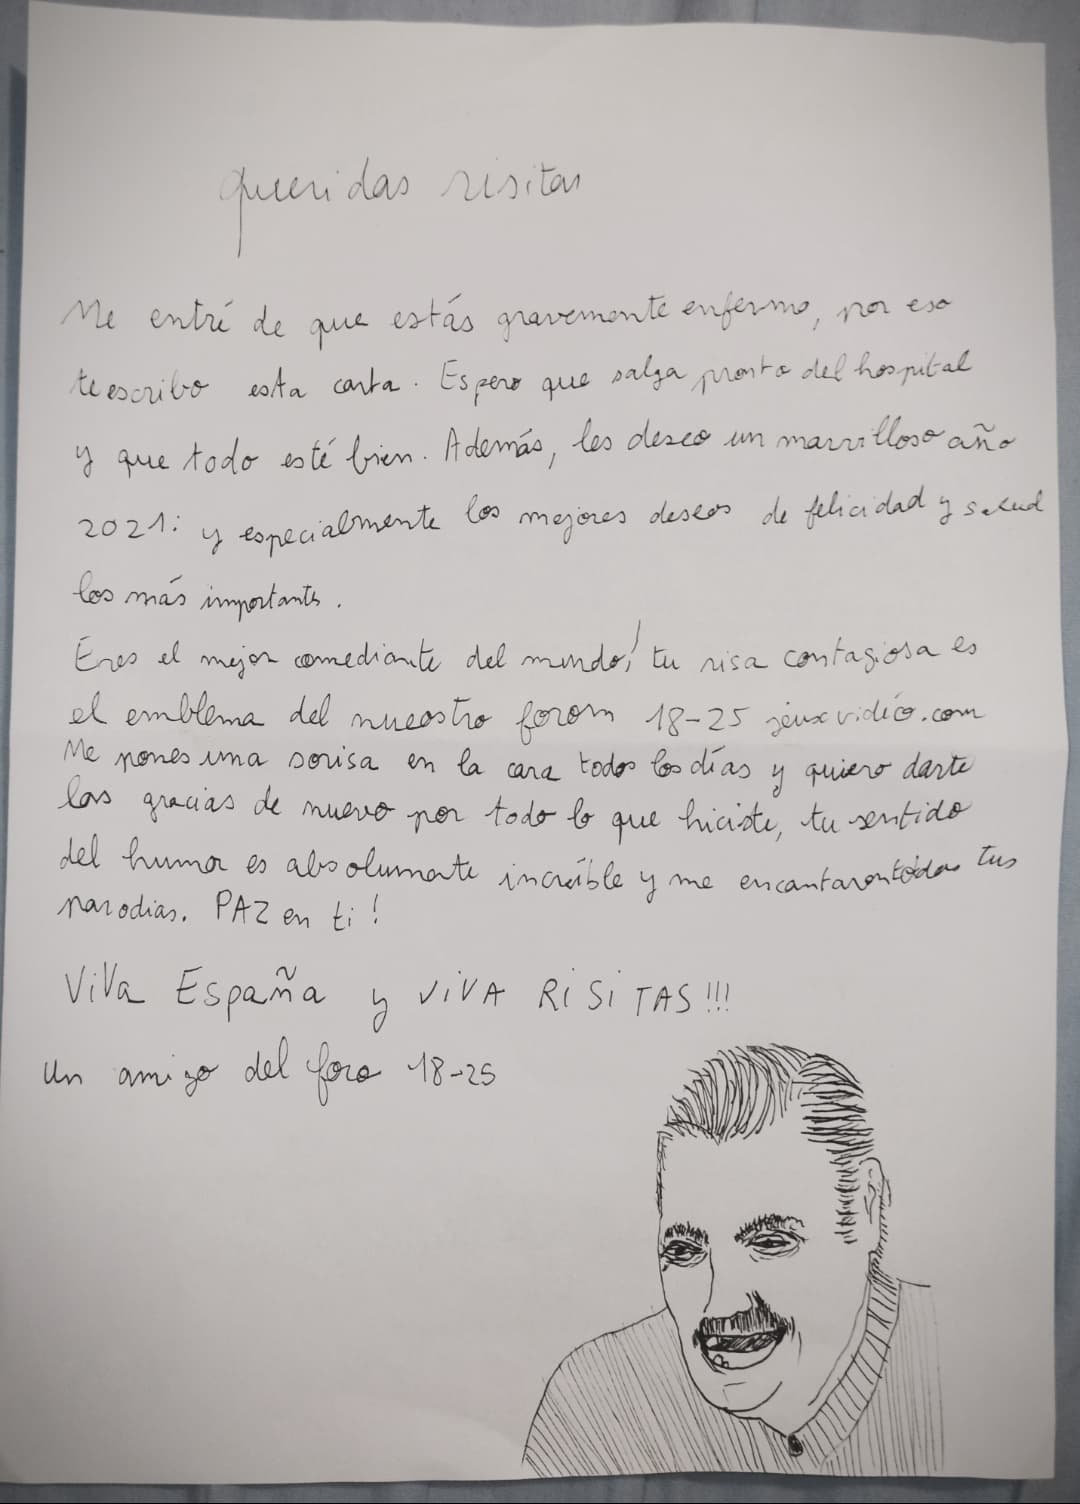 queridas risitas
Me entré de que estás gravemente enfermo, por eso
te escribo esta carta. Espero que salga pronto del hospital
y que todo esté bien. Además, les deseo un marvilloso año
2021: y especialmente los mejores deseos de felicidad y salud
los más importants.
Eres el mejor comediante del mundo! tu risa contagiosa es
el emblema del nueostro forom 18-25 jeuxvidéo.com
Me pones una sorisa en la cara todos los días y quiero darte
las gracias de nuevo por todo lo que hiciste, tu sentido
del humor es absolumente increíble y me encantaron todas tus
parodias. PAZ en ti !
ViVa España y ViVA RiSiTAS!!!
un amigo del foro 18-25